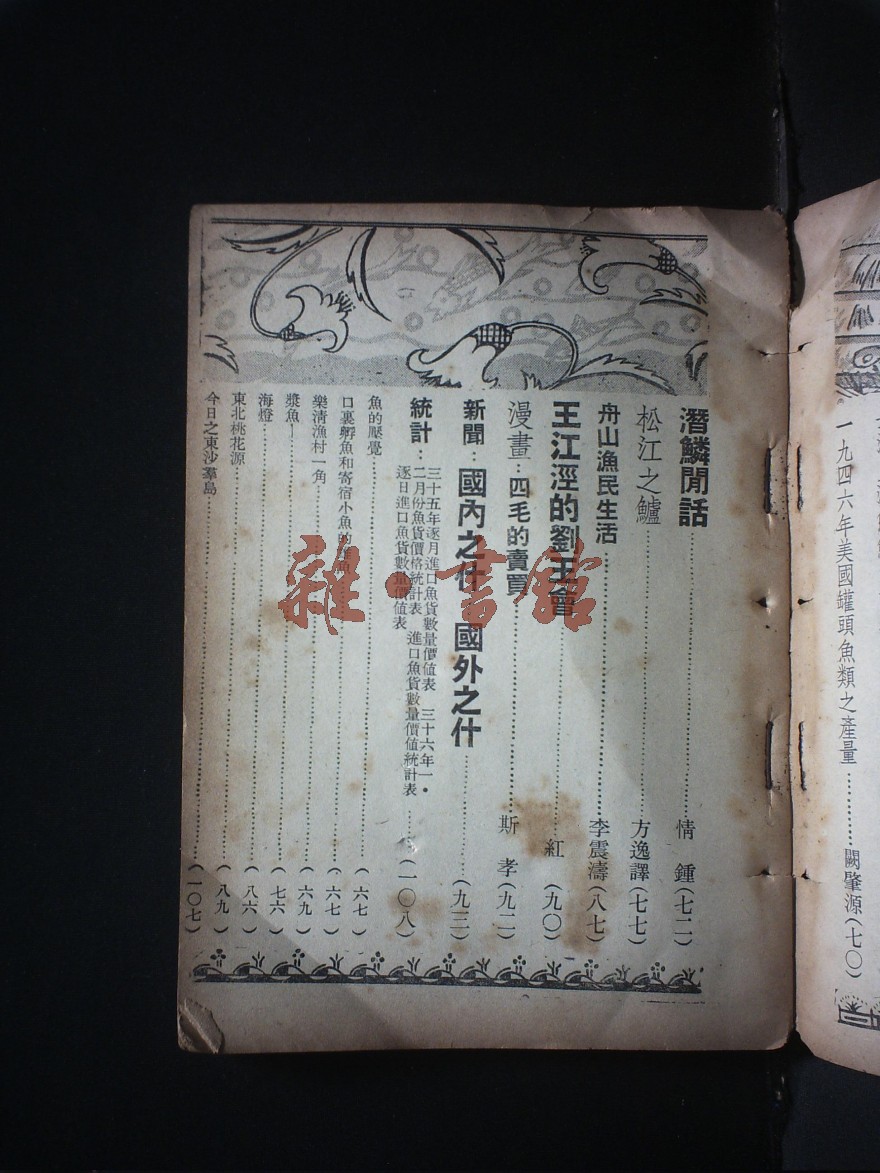 一九四六年美國罐頭魚類之產量………闕肇源(七〇)
潛鱗閒話………情 鍾(七二)
松江之鱸………方逸譯(七七)
舟山漁民生活………李震濤(八七)
王江涇的劉王會………紅(九〇)
漫畫：四毛的賣買………斯 孝(九二)
新聞：國內之什 國外之什………(九三)
統計：三十五年逐月進口魚貨數量價值表 三十六年一・二月份魚貨價格統計表 進口魚貨數量價值統計表 逐日進口魚貨數量價值表………(一〇八)
魚的壓覺………(六七)
口裏孵魚和寄宿小魚的魚………(六七)
樂清漁村一角………(六九)
漿魚………(七六)
海燈………(八六)
東北桃花源………(八九)
今日之東沙羣島………(一〇七)
雜・書館